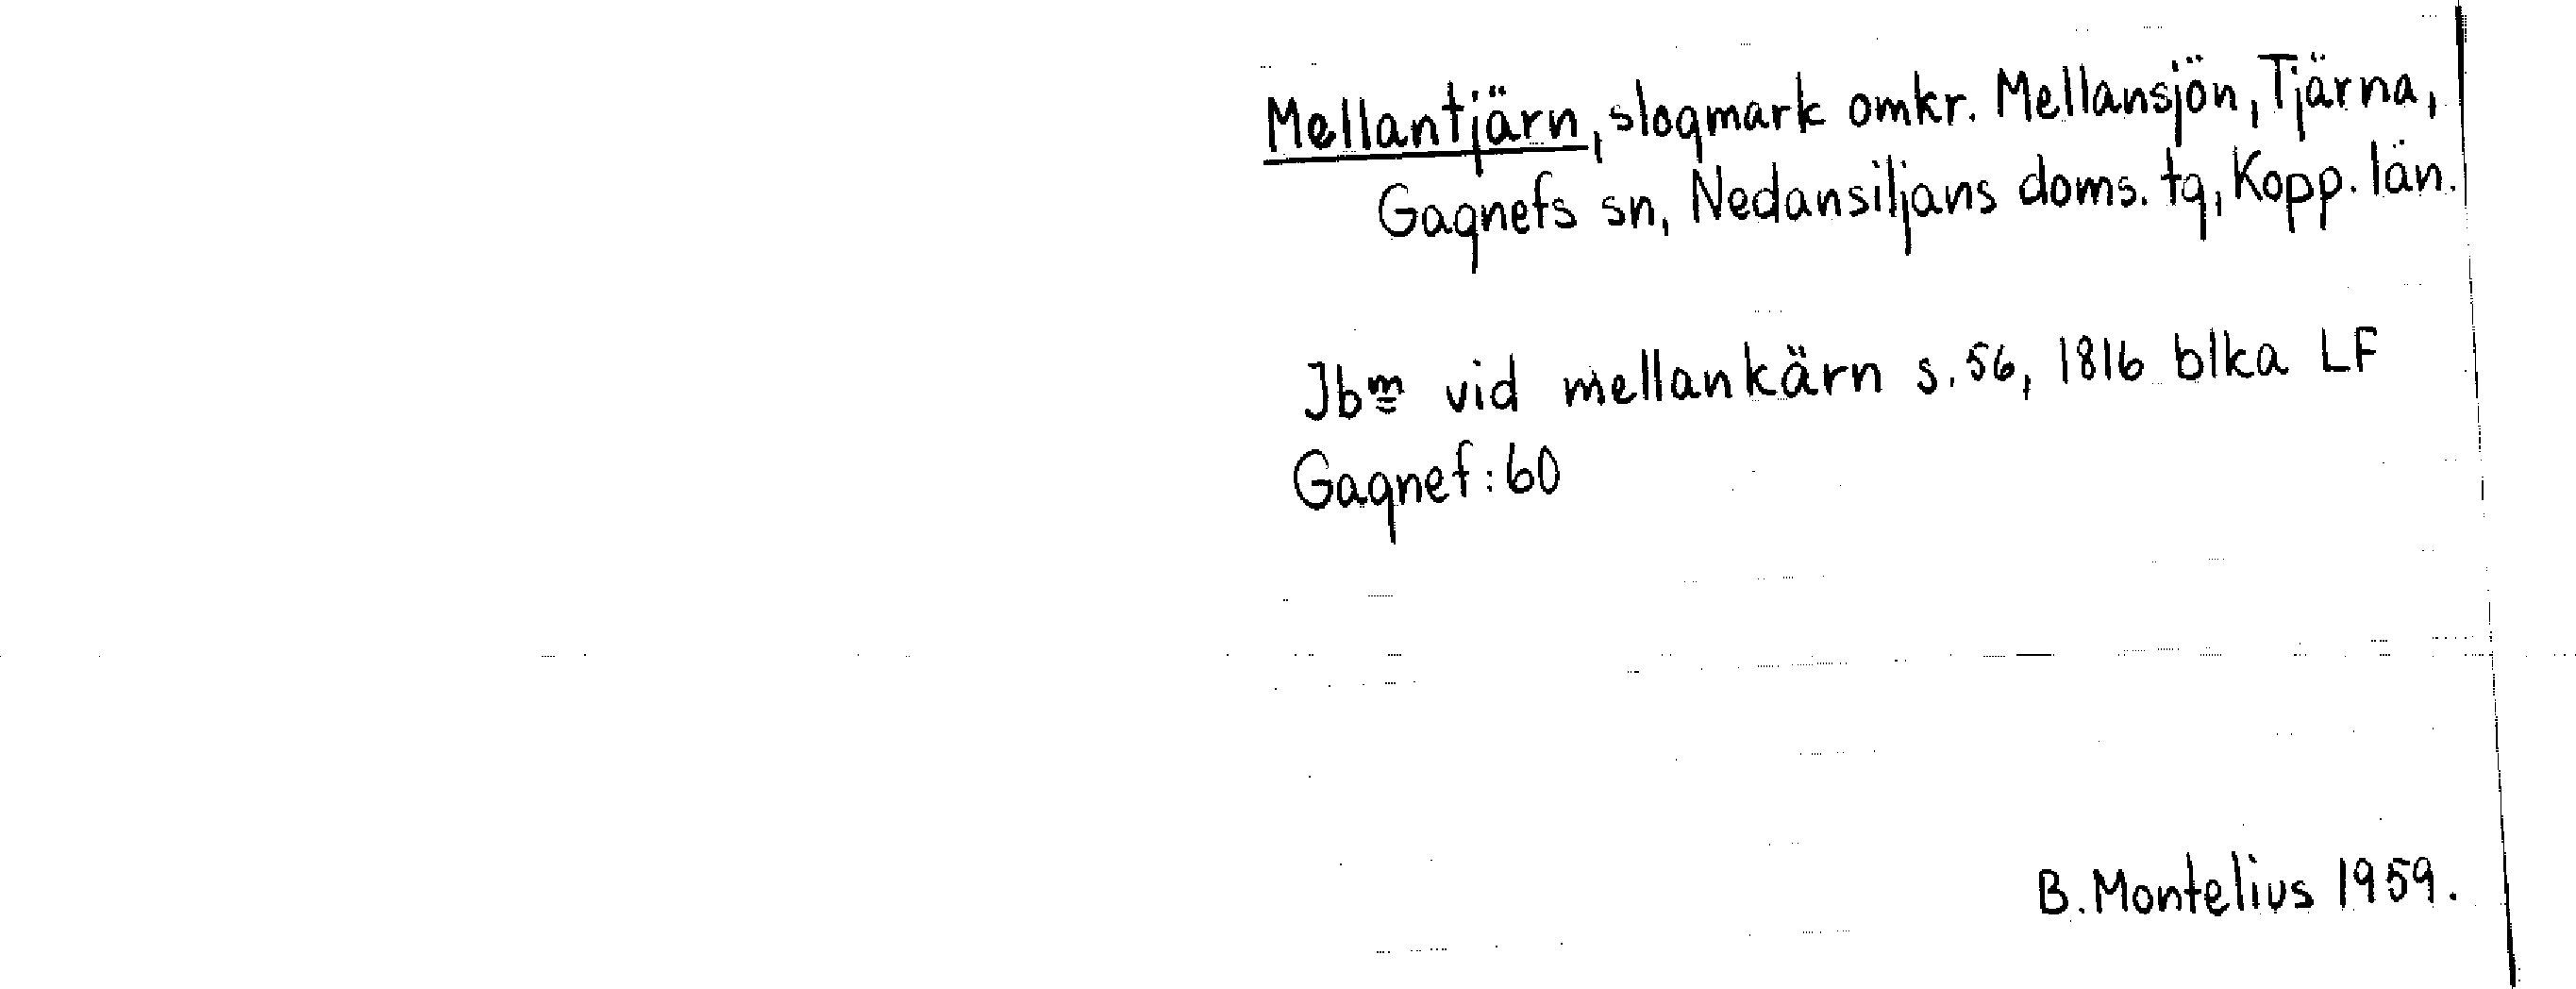 Mellantjärn, slogmark omkr. Mellansjön, Tjärna,
Gagnefs sn, Nedansiljans doms. tg, Kopp. län.
Jbm vid mellankärn s. 56, 1816 blka LF
Gagnef: 60
B. Montelius 1959.